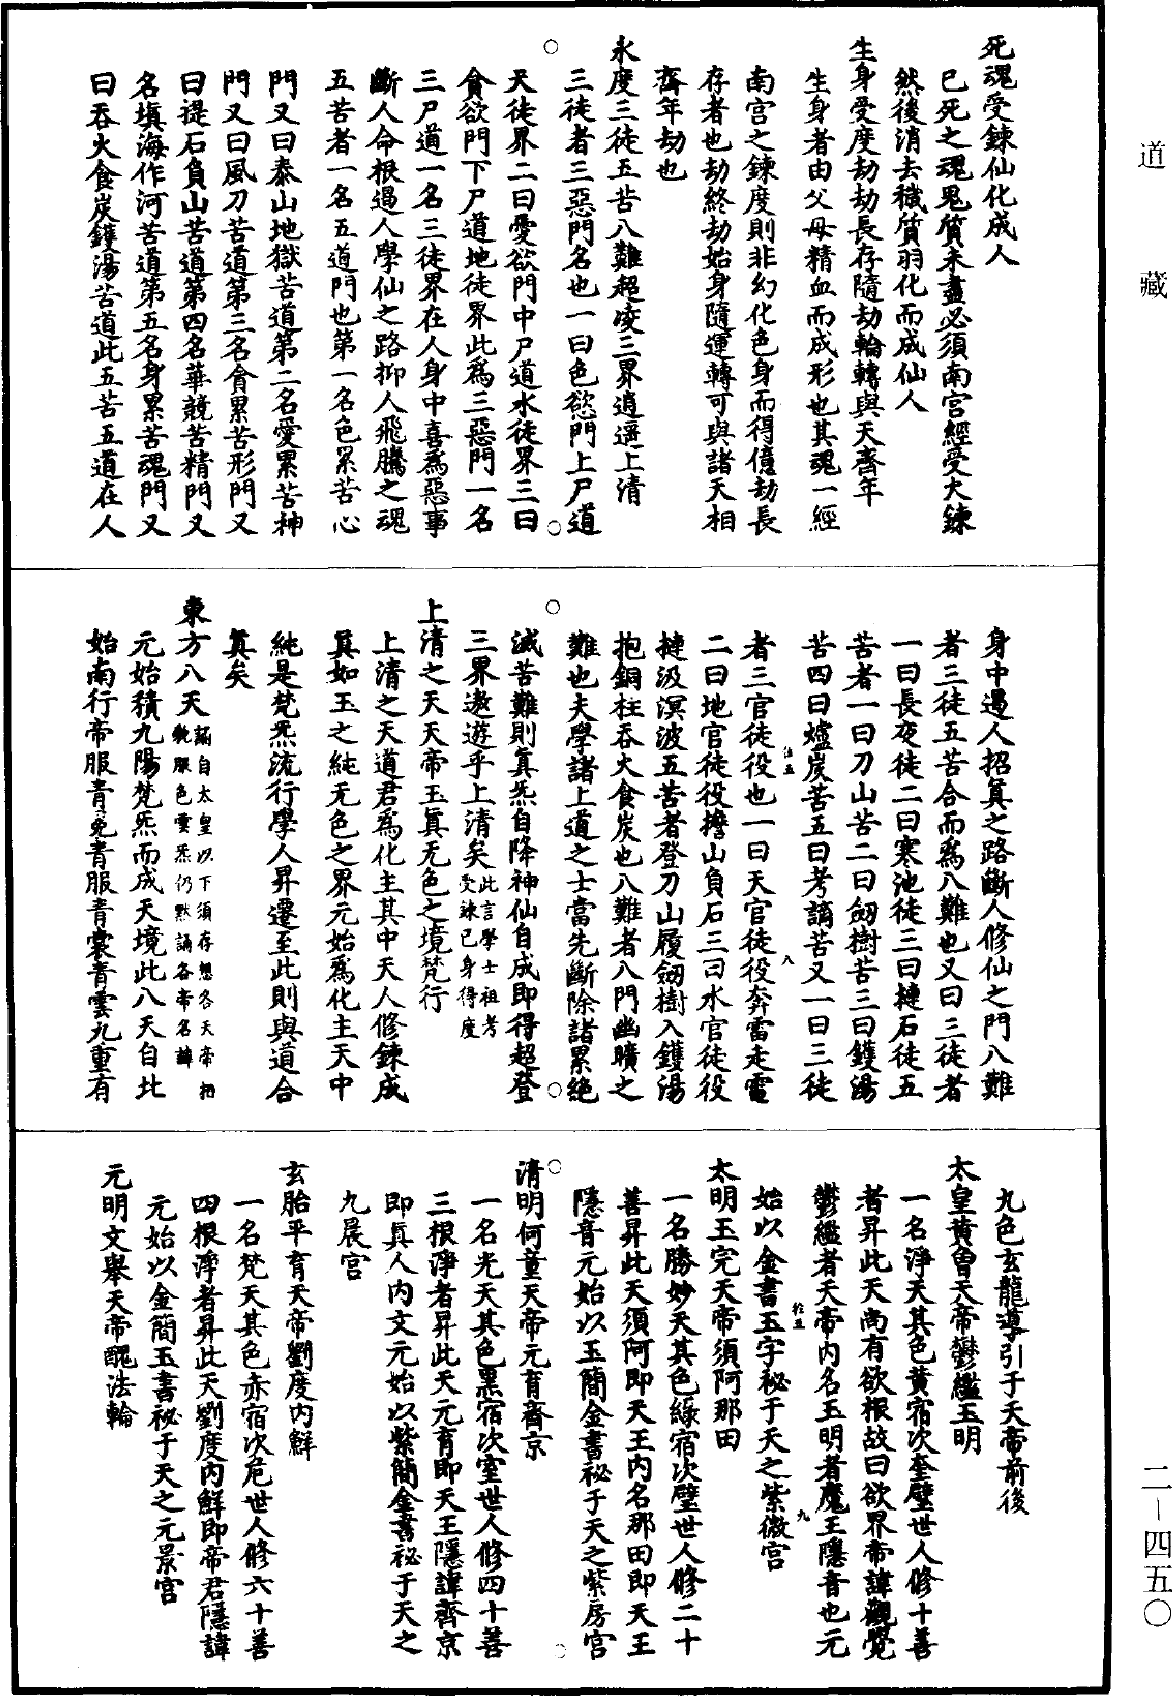 死魂受鍊仙化成人
已死之魂鬼質未盡必須南宮經受火鍊
然後消去穢質羽化而成仙人
生身受度劫劫長存隨劫輪轉與天齊年
生身者由父母精血而成形也其魂一經
南宮之鍊度則非幻化色身而得億劫長
存者也劫終劫始身隨運轉可與諸天相
齊年劫也
永度三徒五苦八難超凌三界逍遥上清
三徒者三惡門名也一曰色慾門上尸道
天徒界二曰愛欲門中尸道水徒界三曰
貪欲門下尸道地徒界此為三惡門一名
三尸道一名三徒界在人身中喜為惡事
斷人命根遏人學仙之路抑人飛騰之魂
五苦者一名五道門也第一名色累苦心
門又曰泰山地獄苦道第二名愛累苦神
門又曰風刀苦道第三名貪累苦形門又
曰提石負山苦道第四名華競苦精門又
名填海作河苦道第五名身累苦魂門又
曰吞火食炭鑊湯苦道此五苦五道在人
身中遏人招真之路斷人修仙之門八難
者三徒五苦合而為八難也又曰三徒者
一曰長夜徒二曰寒池徒三曰摙石徒五
苦者一曰刀山苦二曰劒樹苦三曰鑊湯
苦四曰爐炭苦五曰考謫苦又一曰三徒
者三官徒役也一曰天官徒役奔雷走電
二曰地官徒役擔山負石三曰水官徒役
摙汲溟波五苦者登刀山履劒樹入鑊湯
抱銅柱吞火食炭也八難者八門幽曠之
難也夫學諸上道之士當先斷除諸累絕
滅苦難則真炁自降神仙自成即得超登
三界遨遊乎上清矣此言學士祖考受鍊已身得度
上清之天天帝玉真无色之境梵行
上清之天道君為化主其中天人修鍊成
真如玉之純无色之界元始為化主天中
純是梵炁流行學人昇遷至此則與道合
真矣
東方八天誦自太皇以下須存想各天帝相貌服色雲炁仍默誦各帝名諱
元始積九陽梵炁而成天境此八天自北
始南行帝服青冕青服青裳青雲九重有
九色玄龍導引于天帝前後
太皇黃曾天帝鬱繿玉明
一名淨天其色黃宿次奎壁世人修十善
者昇此天尚有欲根故曰欲界帝諱觀覺
鬱繿者天帝內名玉明者魔王隱音也元
始以金書玉字秘于天之紫微宮
太明玉完天帝須阿那田
一名勝妙天其色綠宿次壁世人修二十
善昇此天須阿即天王內名那田即天王
隱音元始以玉簡金書秘于天之紫房宮
清明何童天帝元育齊京
一名光天其色黑宿次室世人修四十善
三根淨者昇此天元育即天王隱諱齊京
即真人內文元始以紫簡金書秘于天之
九晨宮
玄胎平育天帝劉度內鮮
一名梵天其色赤宿次危世人修六十善
四根淨者昇此天劉度內鮮即帝君隱諱
元始以金簡玉書秘于天之元景宮
元明文舉天帝醜法輪
道藏
二－四五〇